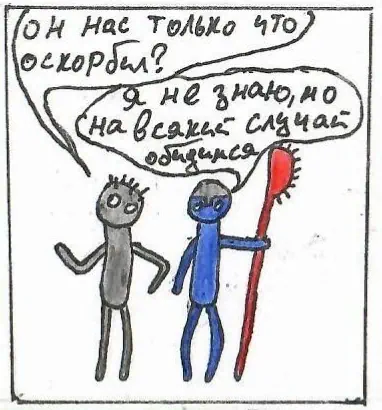 он нас только что
оскорбил?
я не знаю, но
на всякий случай
обидимся